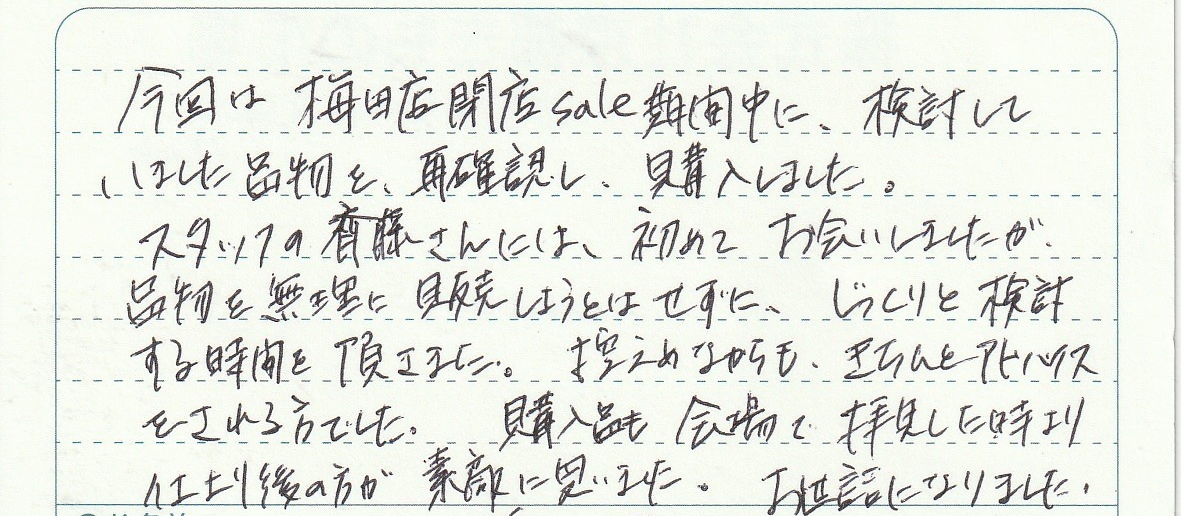 今回は 梅田店閉店sale期間中に、検討して
いました品物を、再確認し、購入しました。
スタッフの齊藤さんには、初めて お会いしましたが、
品物を無理に販売しようとはせずに、じっくりと検討
する時間を頂きました。控えめながらも、きちんとアドバイス
をされる方でした。 購入品も 会場で 拝見した時より
仕上り後の方が 素敵に思いました。 お世話になりました。